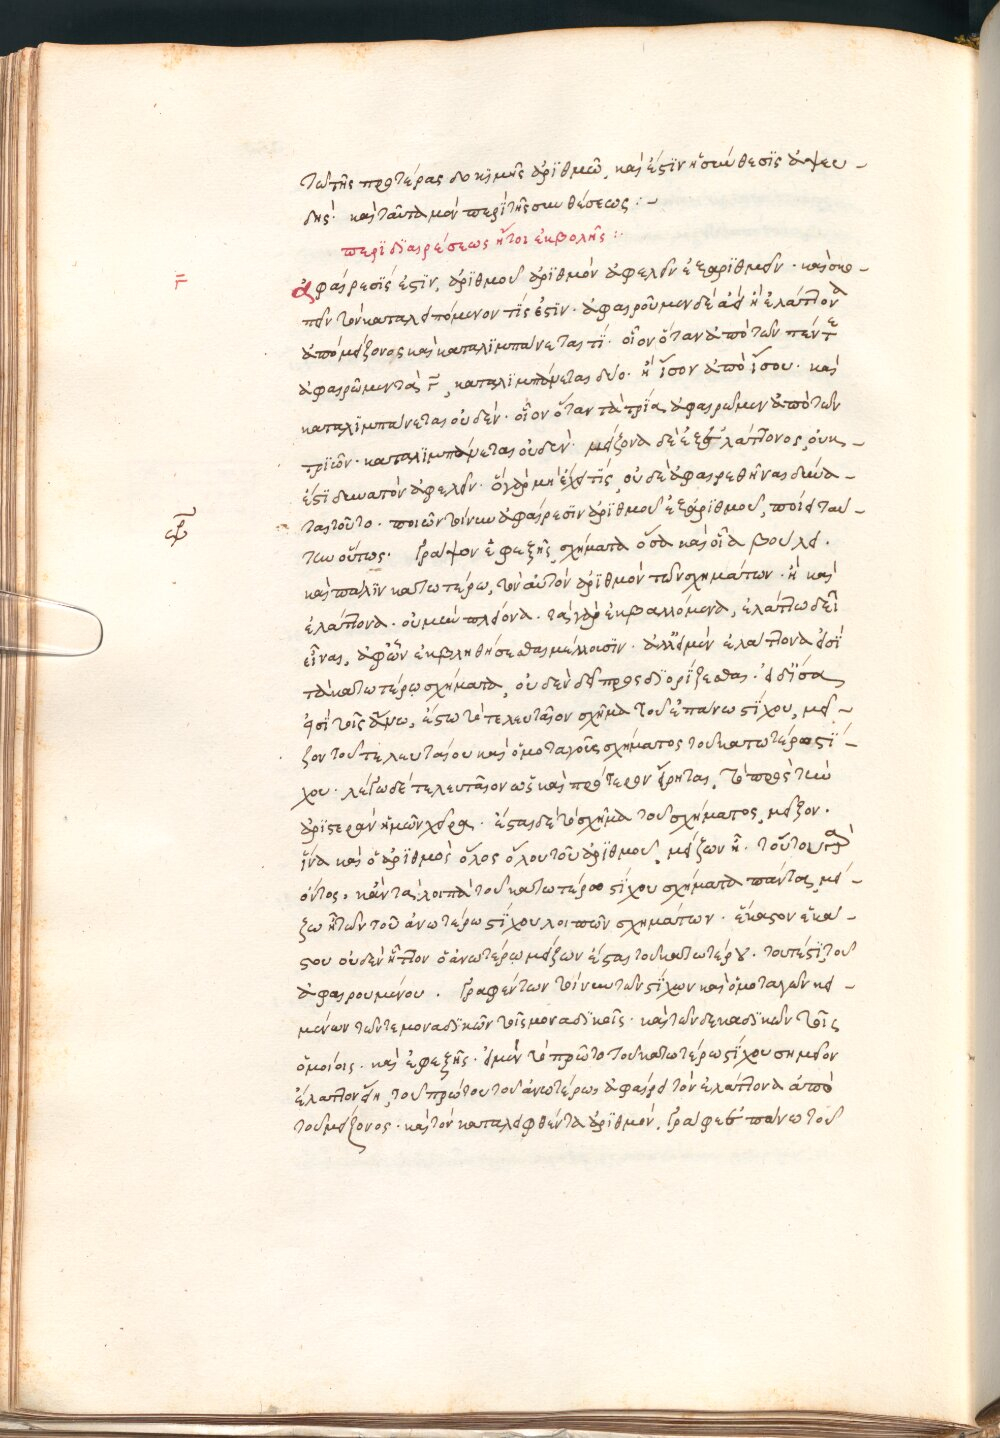 τω τῆς προτέρας δοκιμῆς ἀρϊθμῶ, καὶ ἐστὶν ἡ σύνθεσϊς ἀψευ-
δής· καὶ ταῦτα μὲν περὶ τῆς συνθέσεως :-
περὶ διαιρέσεως ἤτοι ἐκβολῆς :·
Γ̅
ἀφαίρεσΐς ἐστϊν, ἀρϊθμοῦ ἀρϊθμὸν ἀφελεῖν ἐξ ἀρϊθμοῦ· καὶ σκο-
πεῖν τὸν καταλειπόμενον τίς ἐστϊν· ἀφαιροῦμεν δὲ ἀεὶ ἢ ἐλάττονα
ἀπὸ μείζονος καὶ καταλϊμπάνεταί τϊ· οἷον ὅταν ἀπὸ τῶν πέντε
ἀφαιρῶμεν τὰ Γ̅, καταλϊμπάνεται δύο· ἢ ἶσον ἀπὸ ἴσου· καὶ
καταλϊμπάνεται οὐδέν· οἷον ὅταν τὰ τρία ἀφαιρῶμεν ἀπὸ τῶν
τρϊῶν· καταλϊμπάνεται οὐδέν· μείζονα δὲ ἐξ ἐλάττονος, οὐκ
ἐστϊ δυνατὸν ἀφελεῖν· ὃ γὰρ μὴ ἔχει τΐς, οὐδὲ ἀφαιρεθῆναι δύνα-
ται τοῦτο· ποιῶν τοίνυν ἀφαίρεσϊν ἀρϊθμοῦ ἐξ ἀρϊθμοῦ, ποίει ταύ-
την οὕτως· Γράψον ἐφεξῆς σχήματα ὅσα καὶ οἷα βούλει·
καὶ πάλϊν κατωτέρω, τὸν αὐτὸν ἀρϊθμὸν τῶν σχημάτων· ἢ καὶ
ἐλάττονα· οὐ μὴν πλείονα· τὰ γὰρ ἐκβαλλόμενα, ἐλάττω δεῖ
εἶναι, ἀφ' ὧν ἐκβληθήσεσθαι μέλλουσϊν· ἀλλ' εἰ μὲν ἐλάττονα εἰσΐ
τὰ κατωτέρω σχήματα, οὐδὲν δεῖ προσδϊορίζεσθαι· εἰ δ' ἴσα
εἰσὶ τοῖς ἄνω, ἔστω τὸ τελευταῖον σχῆμα τοῦ ἐπάνω στΐχου, μεῖ-
ζον τοῦ τελευταίου καὶ ὁμοταγοῦς σχήματος τοῦ κατωτέρω στΐ-
χου· λέγω δὲ τελευταῖον ὡς καὶ πρότερον εἴρηται, τὸ πρὸς τὴν
ἀρϊστερὰν ἡμῶν χεῖρα· ἔσται δὲ τὸ σχῆμα τοῦ σχήματος, μεῖζον·
ἵνα καὶ ὁ ἀρϊθμὸς ὅλος ὅλου τοῦ ἀρϊθμοῦ, μείζων ἦ· τούτου γὰρ
ὄντος, κἂν τὰ λοιπὰ τοῦ κατωτέρω στΐχου σχήματα πάντα, μεί-
ζω ἦ τῶν τοῦ ἀνωτέρω στΐχου λοιπῶν σχημάτων· ἕκαστον ἑκά-
στου οὐδὲν ἧττον ὁ ἀνωτέρω μείζων ἔσται τοῦ κατωτέρου· τουτέστϊ τοῦ
ἀφαιρουμένου. Γραφέντων τοίνυν τῶν στΐχων καὶ ὁμοταγῶν κει-
μένων τῶν τε μοναδϊκῶν τοῖς μοναδϊκοῖς· καὶ τῶν δεκαδϊκῶν τοῖς
ὁμοίοις· καὶ ἐφεξῆς· εἰ μὲν τὸ πρῶτον τοῦ κατωτέρω στΐχου σημεῖον
ἔλαττον εἴη, τοῦ πρώτου τοῦ ἀνωτέρω, ἀφαίρει τὸν ἐλάττονα ἀπὸ
τοῦ μείζονος· καὶ τὸν καταλειφθέντα ἀρϊθμὸν, Γράφε ἐπάνω τοῦ